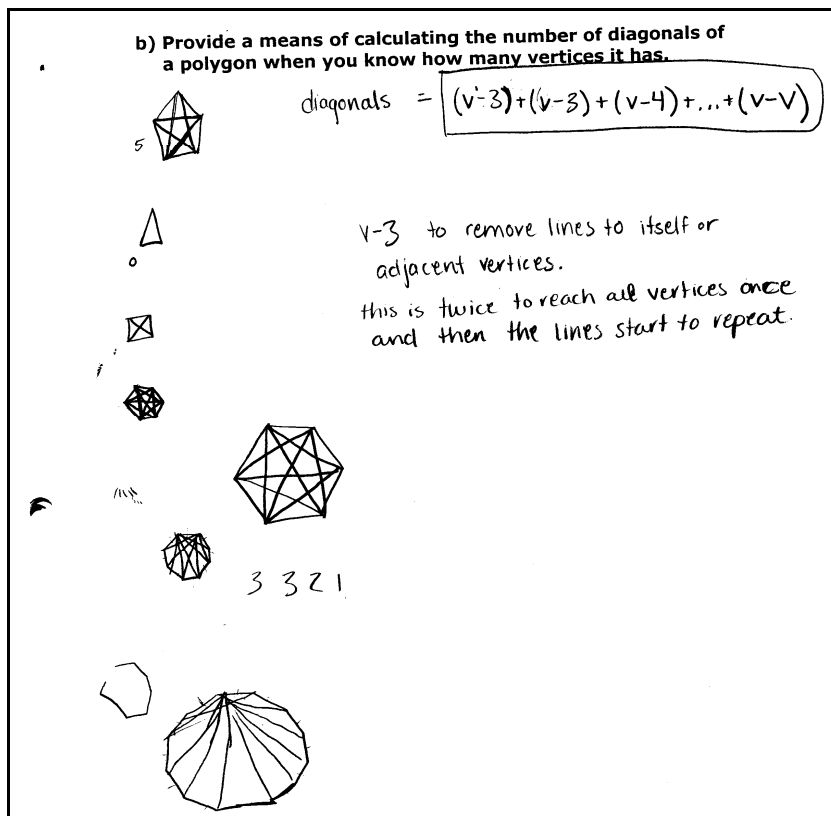 b) Provide a means of calculating the number of diagonals of
a polygon when you know how many vertices it has.
diagonals = (v-3)+(v-3)+(v-4)+...+(v-v)
5
v-3 to remove lines to itself or
adjacent vertices.
0
this is twice to reach all vertices once
and then the lines start to repeat.
3 3 2 1